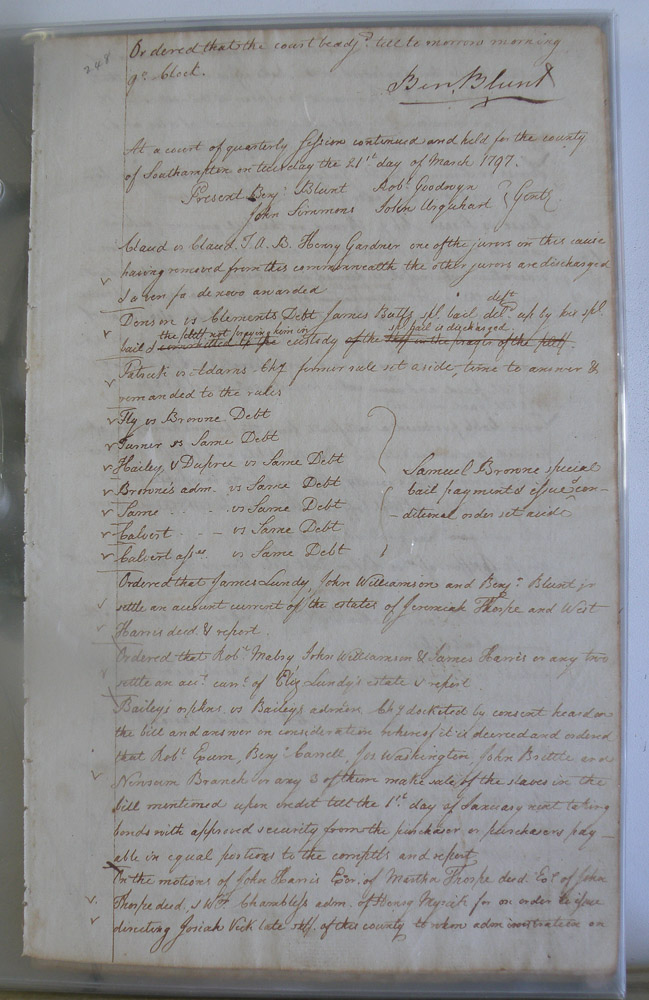 248
Ordered that the court be adjd. till to morrow morning
9 o Clock.
Ben. Blunt
At a court of quarterly Session continued and held for the county
of Southampton on tuesday the 21st day of March 1797.
Present Benj. Blunt Robt. Goodwyn
John Simmons John Urquhart } Gent
Claud vs Claud. T. A. B. Henry Gardner one of the jurors in this cause
having removed from this commonwealth the other jurors are discharged
& a ven fa de novo awarded
deft
Denson vs Clements Debt James Batts spl. bail deld. up by his spl.
the pltf not praying him in spl bail is discharged
bail & committed to the custody of the
Patrick vs Adams Chy former rule set aside, time to answer &
remanded to the rules
Fly vs Browne Debt
Turner vs Same Debt
Hailey & Dupree vs Same Debt
Browne's adm. vs Same Debt
Same - - vs Same Debt
Calvert - - vs Same Debt
Calvert assee. vs Same Debt
Samuel Browne special
bail payment & issue & con-
-ditional order set aside
Ordered that James Lundy, John Williamson and Benj. Blunt jr
settle an account current of the estates of Jeremiah Thorpe and West
Harris deed. & report.
Ordered that Robt. Mabry John Williamson & James Harris or any two
settle an acct. currt. of Eliz Lundy's estate & report
Bailey's orphns. vs Bailey's admors. Chy docketed by consent heard on
the bill and answer on consideration whereof it is decreed and ordered
that Robt. Exum, Benj. Carrell, Jos Washington, John Brittle
Ninsum Branch or any 3 of them make sale of the slaves in the
bill mentioned upon credit till the 1st day of January next taking
bonds with approved security from the purchaser or purchasers pay-
able in equal portions to the complts and report
On the motions of John Harris Exr. of Martha Thorpe deed. Exx of John
Thorpe deed. & Wm Chambless adm. of Henry Myrick for an order to issue
directing Josiah Vick late shff. of this county to whom administration on